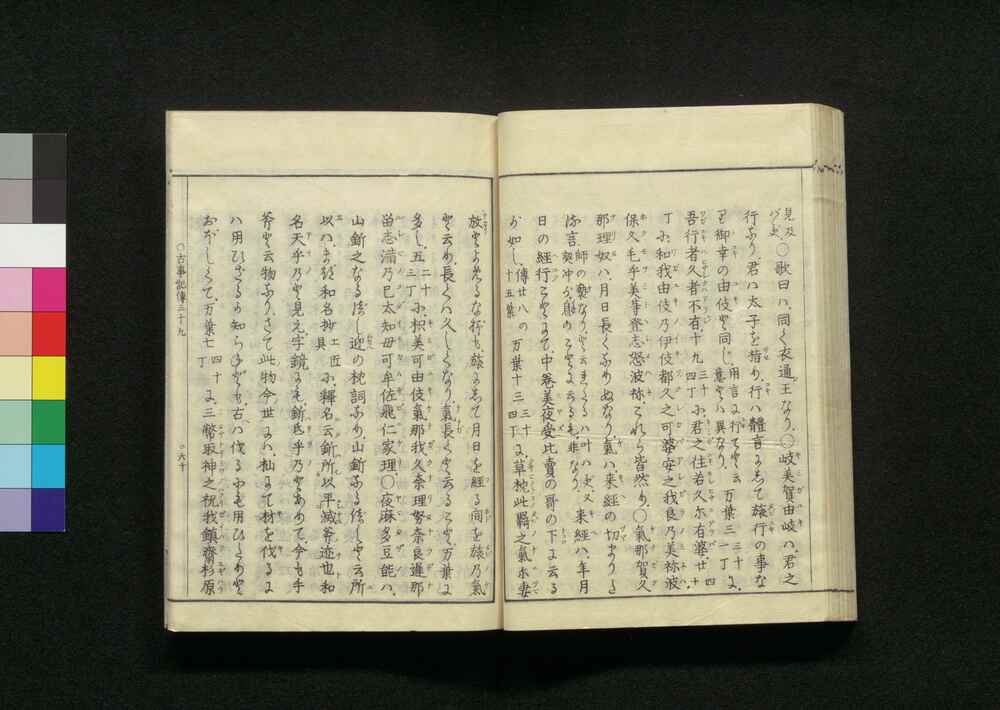 見及ベし、○歌曰ハ同く衣通王なり、○岐美賀由岐ハ、君之
行なり、君ハ太子を指り、行ハ體言にして旅行の事な
り、御幸の由伎と同じ、用言に行てと云意とハ異なり、万葉三三十一丁に、
吾行者久者不有、十九四十丁に、君之往若久尓有婆、廿四十
丁に、和我由伎乃伊伎都久之可婆安之我良乃美祢波
保久毛乎美等登志怒波祢、これら皆然り、○氣那賀久
那理奴ハ、月日長くなりぬなり、氣ハ、来經の切まりたる
言、師の
日の經行ことにて、中卷美夜受比賣の哥の下に云る
が如し、傳廿八の十五葉万葉十三三十四丁に、草枕此羇之氣尓妻
放とよめるな行も、旅にして月日を經る間を旅乃氣
と云り、長くハ久しくなり、氣長くと云ること、万葉に
多し、五二十三丁に、枳美可由伎氣那我久奈理努奈良遅那
留志満乃己太知母可牟佐飛仁家理、○夜麻多豆能ハ、
山釿之なるべし、迎の枕詞なり、山釿なるべしと云所
以ハ、まづ和名抄工匠具に、釋名云釿所以平滅斧迹也和
名天乎乃と見え、字鏡にも釿弖乎乃とありて、今も手
斧と云物なり、さて此物今世にハ、杣にて材を伐るに
ハ用ひざるか知らねども、古ハ伐るにも用ひしなりと
おぼしくて、万葉七四十丁に、三幣取神之祝我鎮齋杉原
○古事記傳三十九
○六十